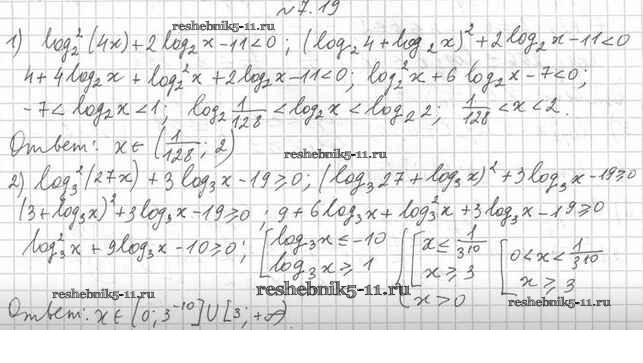 №7.19
reshebnik5-11.ru
1) log₂²(4x)+2log₂x-11<0; (log₂4+log₂x)²+2log₂x-11<0
4+4log₂x+log₂²x+2log₂x-11<0; log₂²x+6log₂x-7<0;
-7<log₂x<1; log₂ 1/128 <log₂x<log₂2; 1/128 <x<2.
Ответ: x∈(1/128; 2)
reshebnik5-11.ru
2) log₃²(27x)+3log₃x-19≥0; (log₃27+log₃x)²+3log₃x-19≥0
(3+log₃x)²+3log₃x-19≥0; 9+6log₃x+log₃²x+3log₃x-19≥0
log₃²x+9log₃x-10≥0; [log₃x≤-10 log₃x≥1 {[x≤1/3¹⁰ x≥3 x>0 [0<x<1/3¹⁰ x≥3
reshebnik5-11.ru reshebnik5-11.ru reshebnik5-11.ru
Ответ: x∈[0; 3⁻¹⁰]∪[3; +∞)